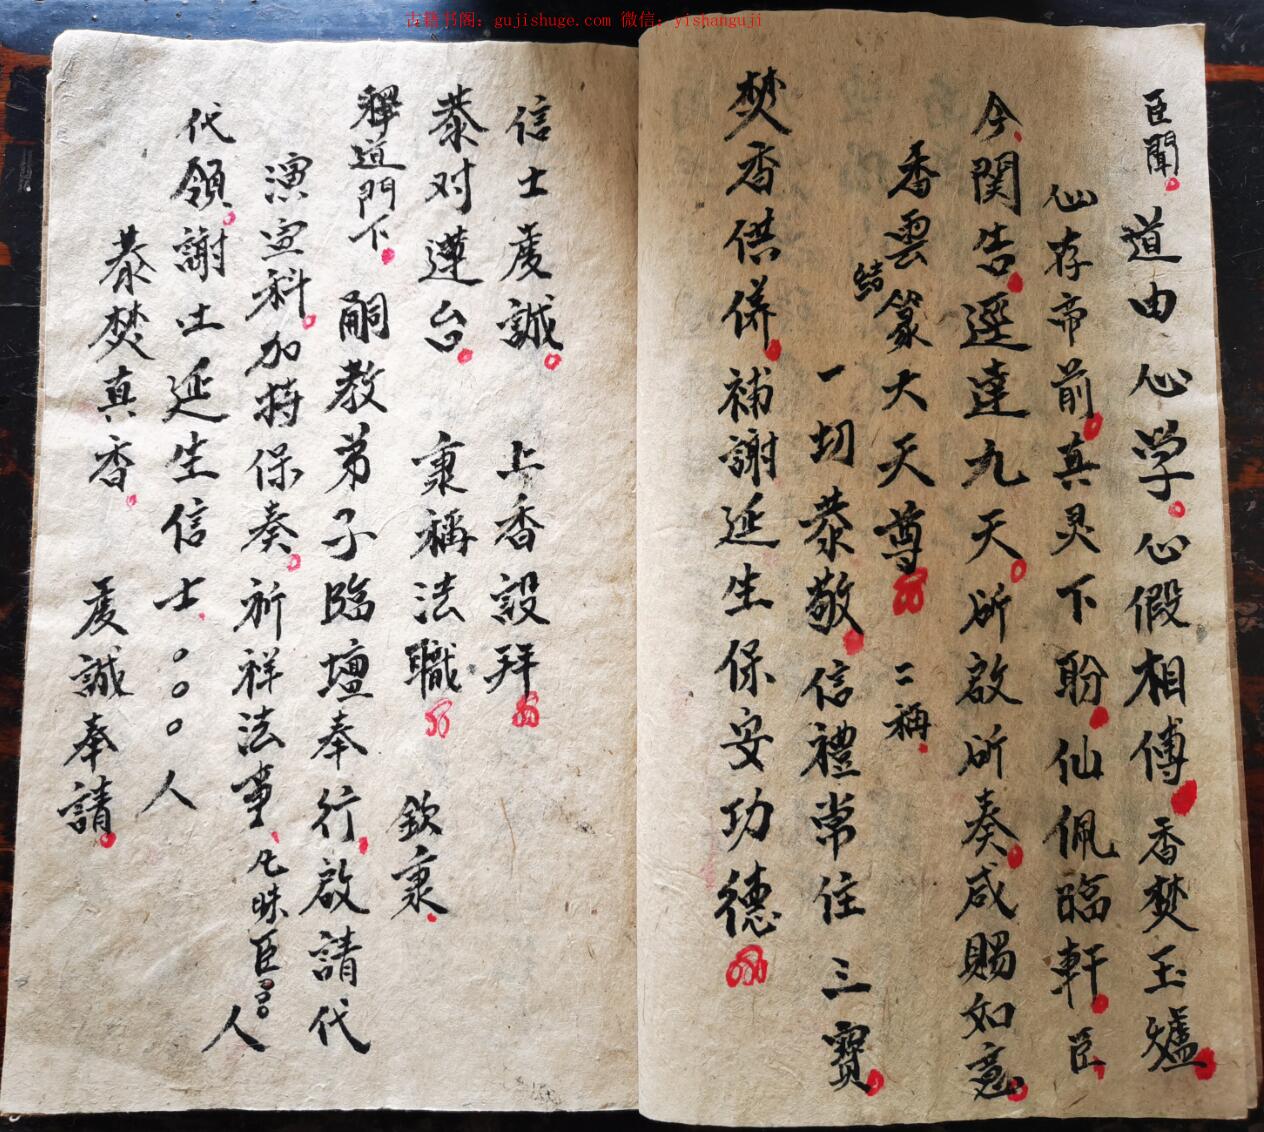 古籍书阁：gujishuge.com 微信：yishanguji
臣聞。道由心学。心假相傅。香焚玉爐。
心存帝前。真灵下盼。仙佩臨軒。臣、
今、関告。逕達九天。所啟所奏。咸賜如意。
香雲結篆大天尊 二称、
一切恭敬。信禮常住三寳。
焚香供併。補謝延生保安功德
信士虔誠。上香設拜
恭对蓮台。秉稱法職 欽秉、
釋道門下。嗣教弟子臨壇奉行、啟請代
演宣科。加持保奏。祈祥法事、凡昧臣子。。人
代領。謝土延生信士、。。。人
恭焚真香、虔誠奉請。